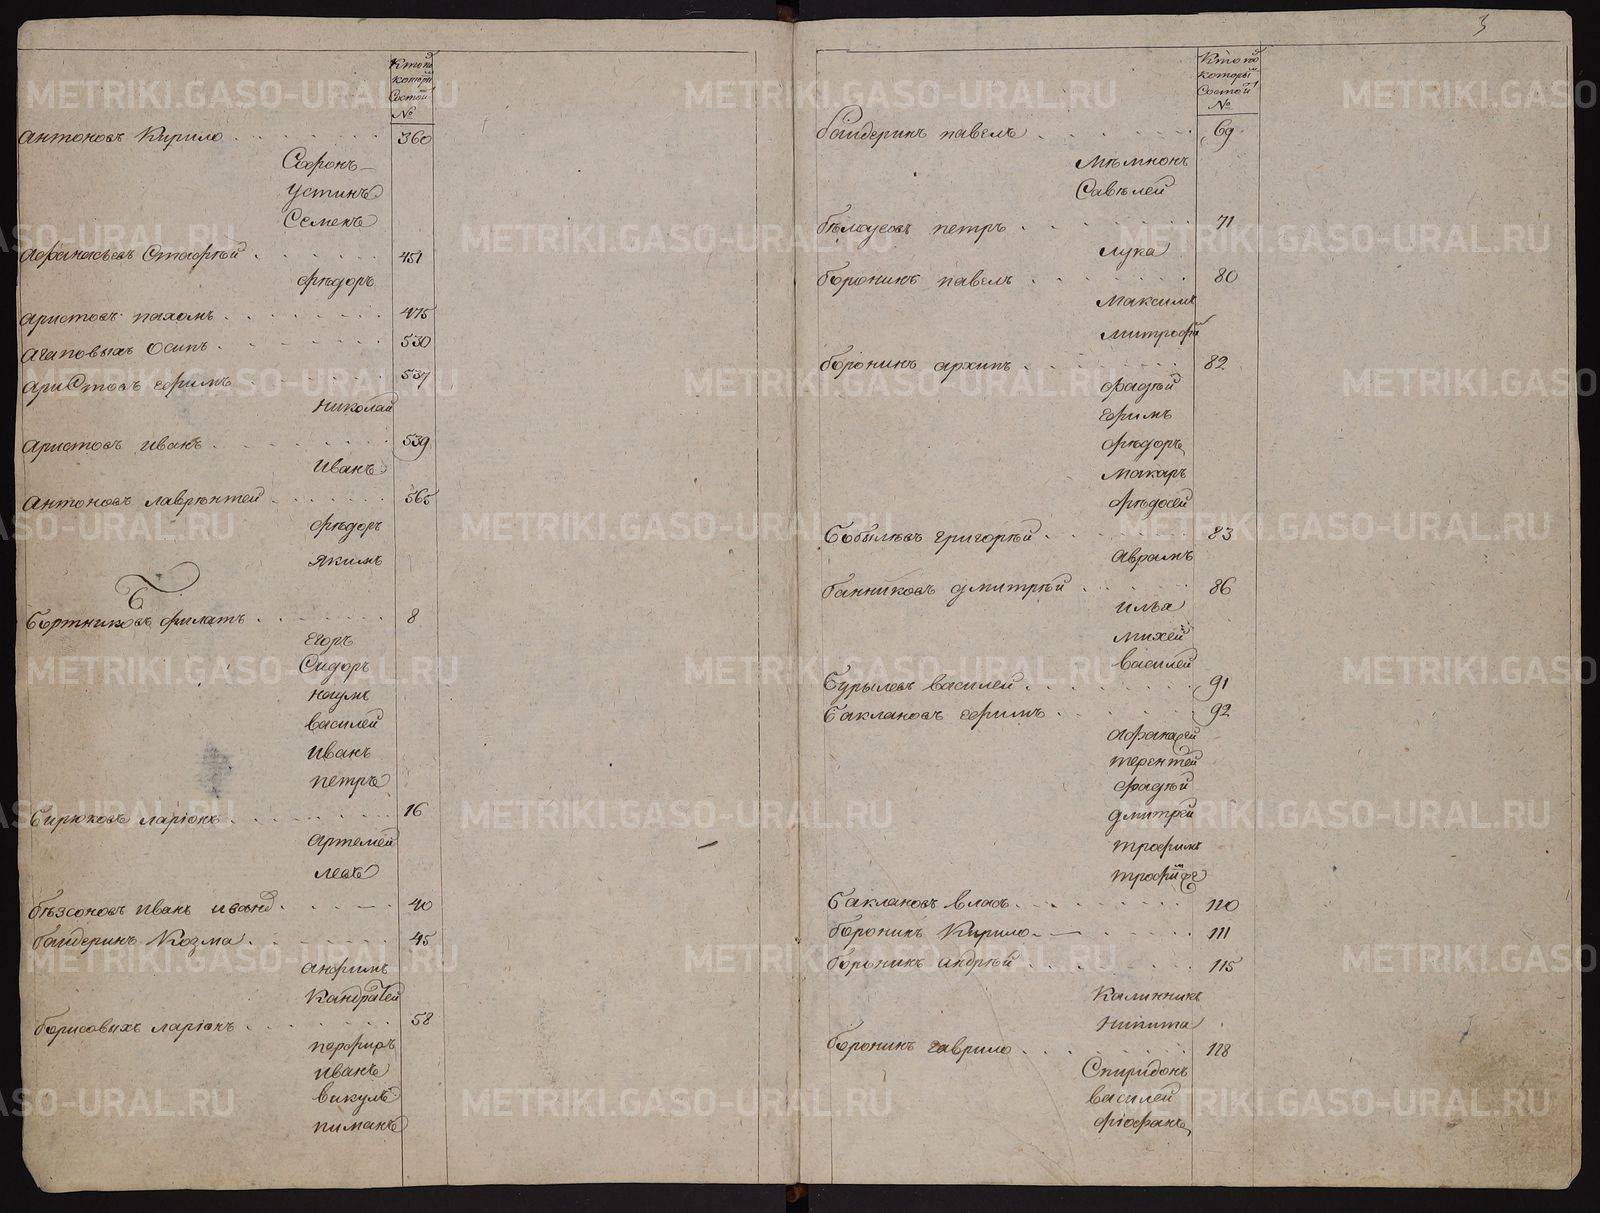 Кто по
которы
Состой
№
антоновъ Кирило 360
Софронъ
устинъ
Семенъ
афанасьевъ Стафѣй 451
фѣдоръ
аристовъ пахомъ 475
агаповыхъ осипъ 530
аристовъ ефимъ 537
николай
аристовъ иванъ 539
иванъ
антоновъ лаврѣнтей 565
фѣдоръ
якимъ
Б
Бортниковъ филатъ 8
егоръ
Сидоръ
наумъ
василей
иванъ
петръ
Бирюковъ ларіонъ 16
артемей
левъ
бѣзсоновъ иванъ 40
байдеринъ Козма 45
анфимъ
Кандратей
борисовыхъ ларіонъ 58
перфиръ
иванъ
викулъ
пиманъ
3
Кто по
которы
Состой
№
байдеринъ павелъ 69
мѣмнонъ
Савѣлей
бѣлоусовъ петръ 71
лука
боронинъ павелъ 80
максимъ
митрофа
боронинъ архипъ 82
фадѣй
ефимъ
фѣдоръ
макаръ
фѣдосей
Бобылѣвъ григорѣй 83
аврамъ
банниковъ дмитрѣй 86
илья
михей
василей
Бурылевъ василей 91
Баклановъ ефимъ 92
афанасей
терентей
фадѣй
дмитрей
трофимъ
трофим же
Баклановъ власъ 110
боронинъ Кирило 111
боронинъ андрѣй 115
Калинникъ
никита
боронинъ гаврило 118
Спиридонъ
василей
фіофанъ
METRIKI.GASO-URAL.RU